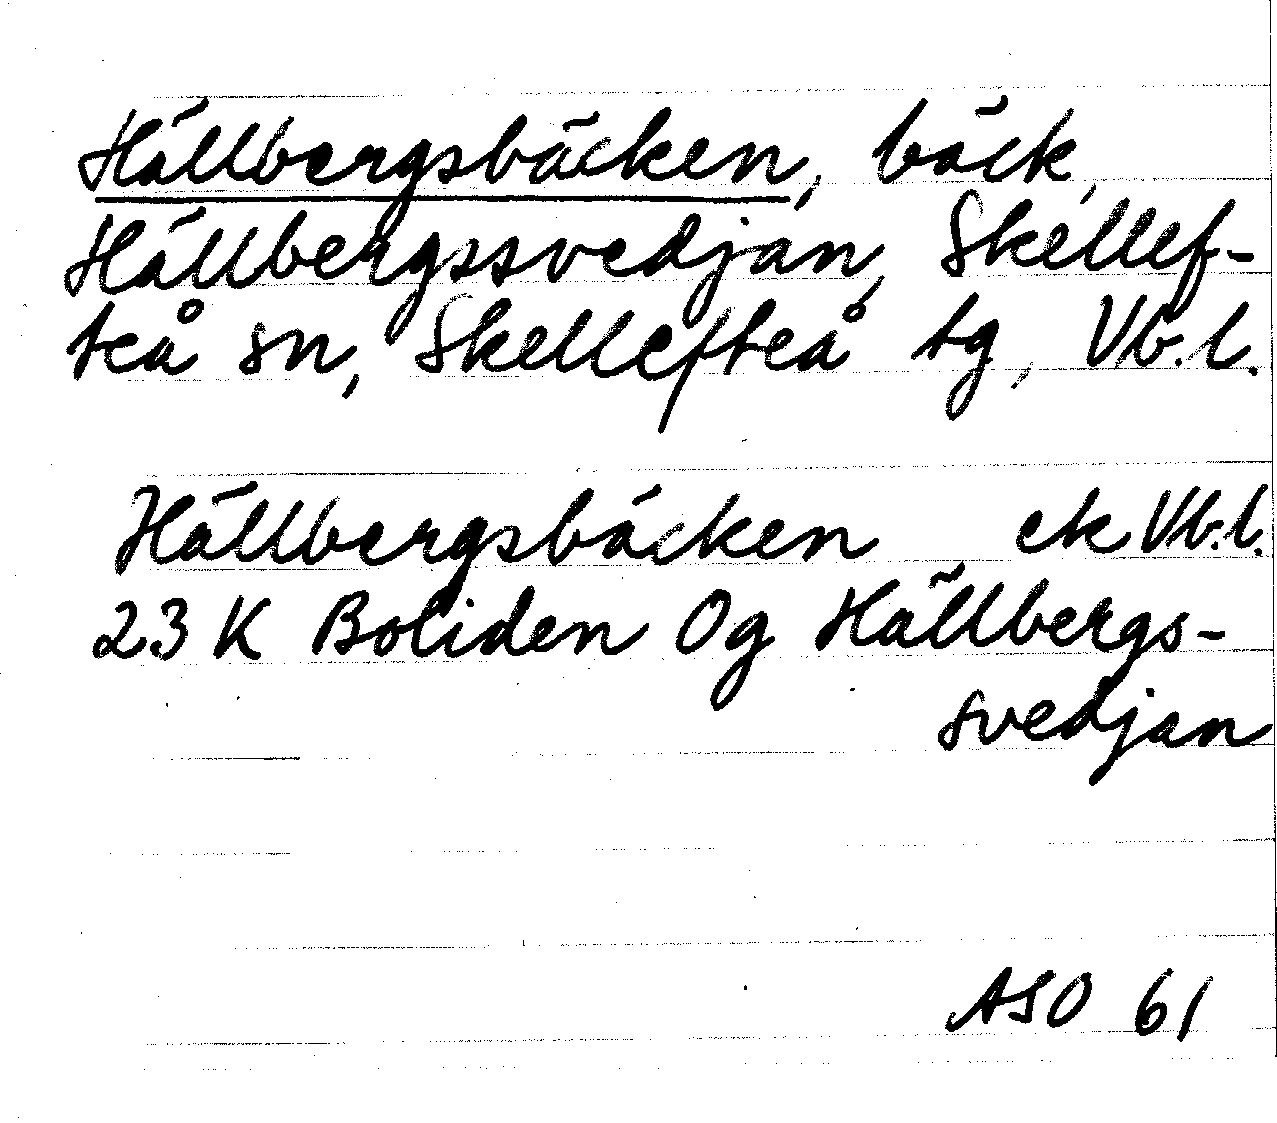 Hällbergsbäcken, bäck,
Hällbergssvedjan, Skellef-
teå sn, Skellefteå tg, Vb. l.
Hällbergsbäcken ek Vb. l.
23 K Boliden Og Hällbergs-
svedjan
ASO 61